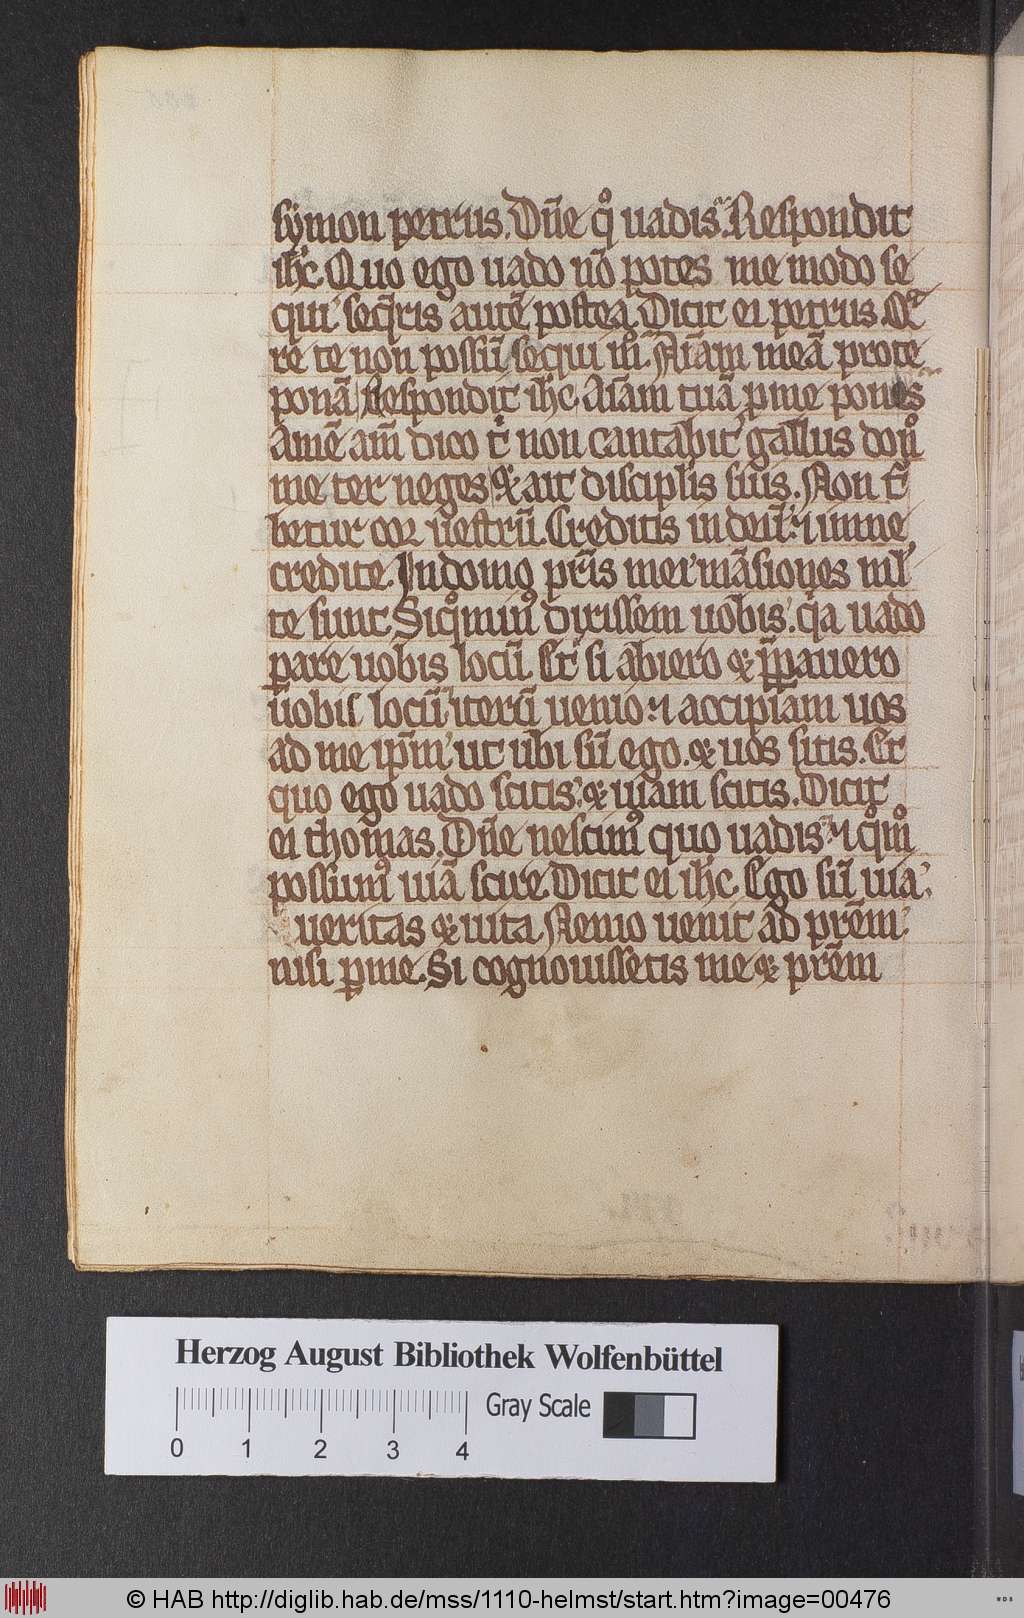 sẏmon petrus. Dn̄e qͦ uadis. Respondit
ih̄c. Quo ego uado nō potes me modo se
qui. seq̄ris autē postea. Dicit ei petrus. Q̄ͣ
re te non possū sequi mͦ. Aīam meā pro te
ponā. Respondit ih̄c. Aīam tuā ꝑ me pones
Amē am̄ dico tͥ non cantabit gallus donͨ
me ter neges. & ait discipl̄is suis. Non tͬ
betur cor uestrū. Creditis in deū. ⁊ in me
credite. In domo pr̄is mei māsiones ml̄
te sunt. Siqͦminꝰ dixissem uobis. q̄a uado
ꝑare uobis locū. Et si abiero & p̄ꝑauero
uobis locū. iterū uenio. ⁊ accipiam uos
ad me ip̄m. ut ubi sū ego. & uos sitis. Et
quo ego uado scitis. & uiam scitis. Dicit
ei thomas. Dn̄e nescimꝰ quo uadis. ⁊ qͦmͦ
possumꝰ uiā scire. Dicit ei ih̄c. Ego sū uia.
ueritas & uita. Nemo uenit ad prēm.
nisi ꝑ me. Si cognouissetis me & prēm
Herzog August Bibliothek Wolfenbüttel
Gray Scale
0 1 2 3 4
© HAB http://diglib.hab.de/mss/1110-helmst/start.htm?image=00476